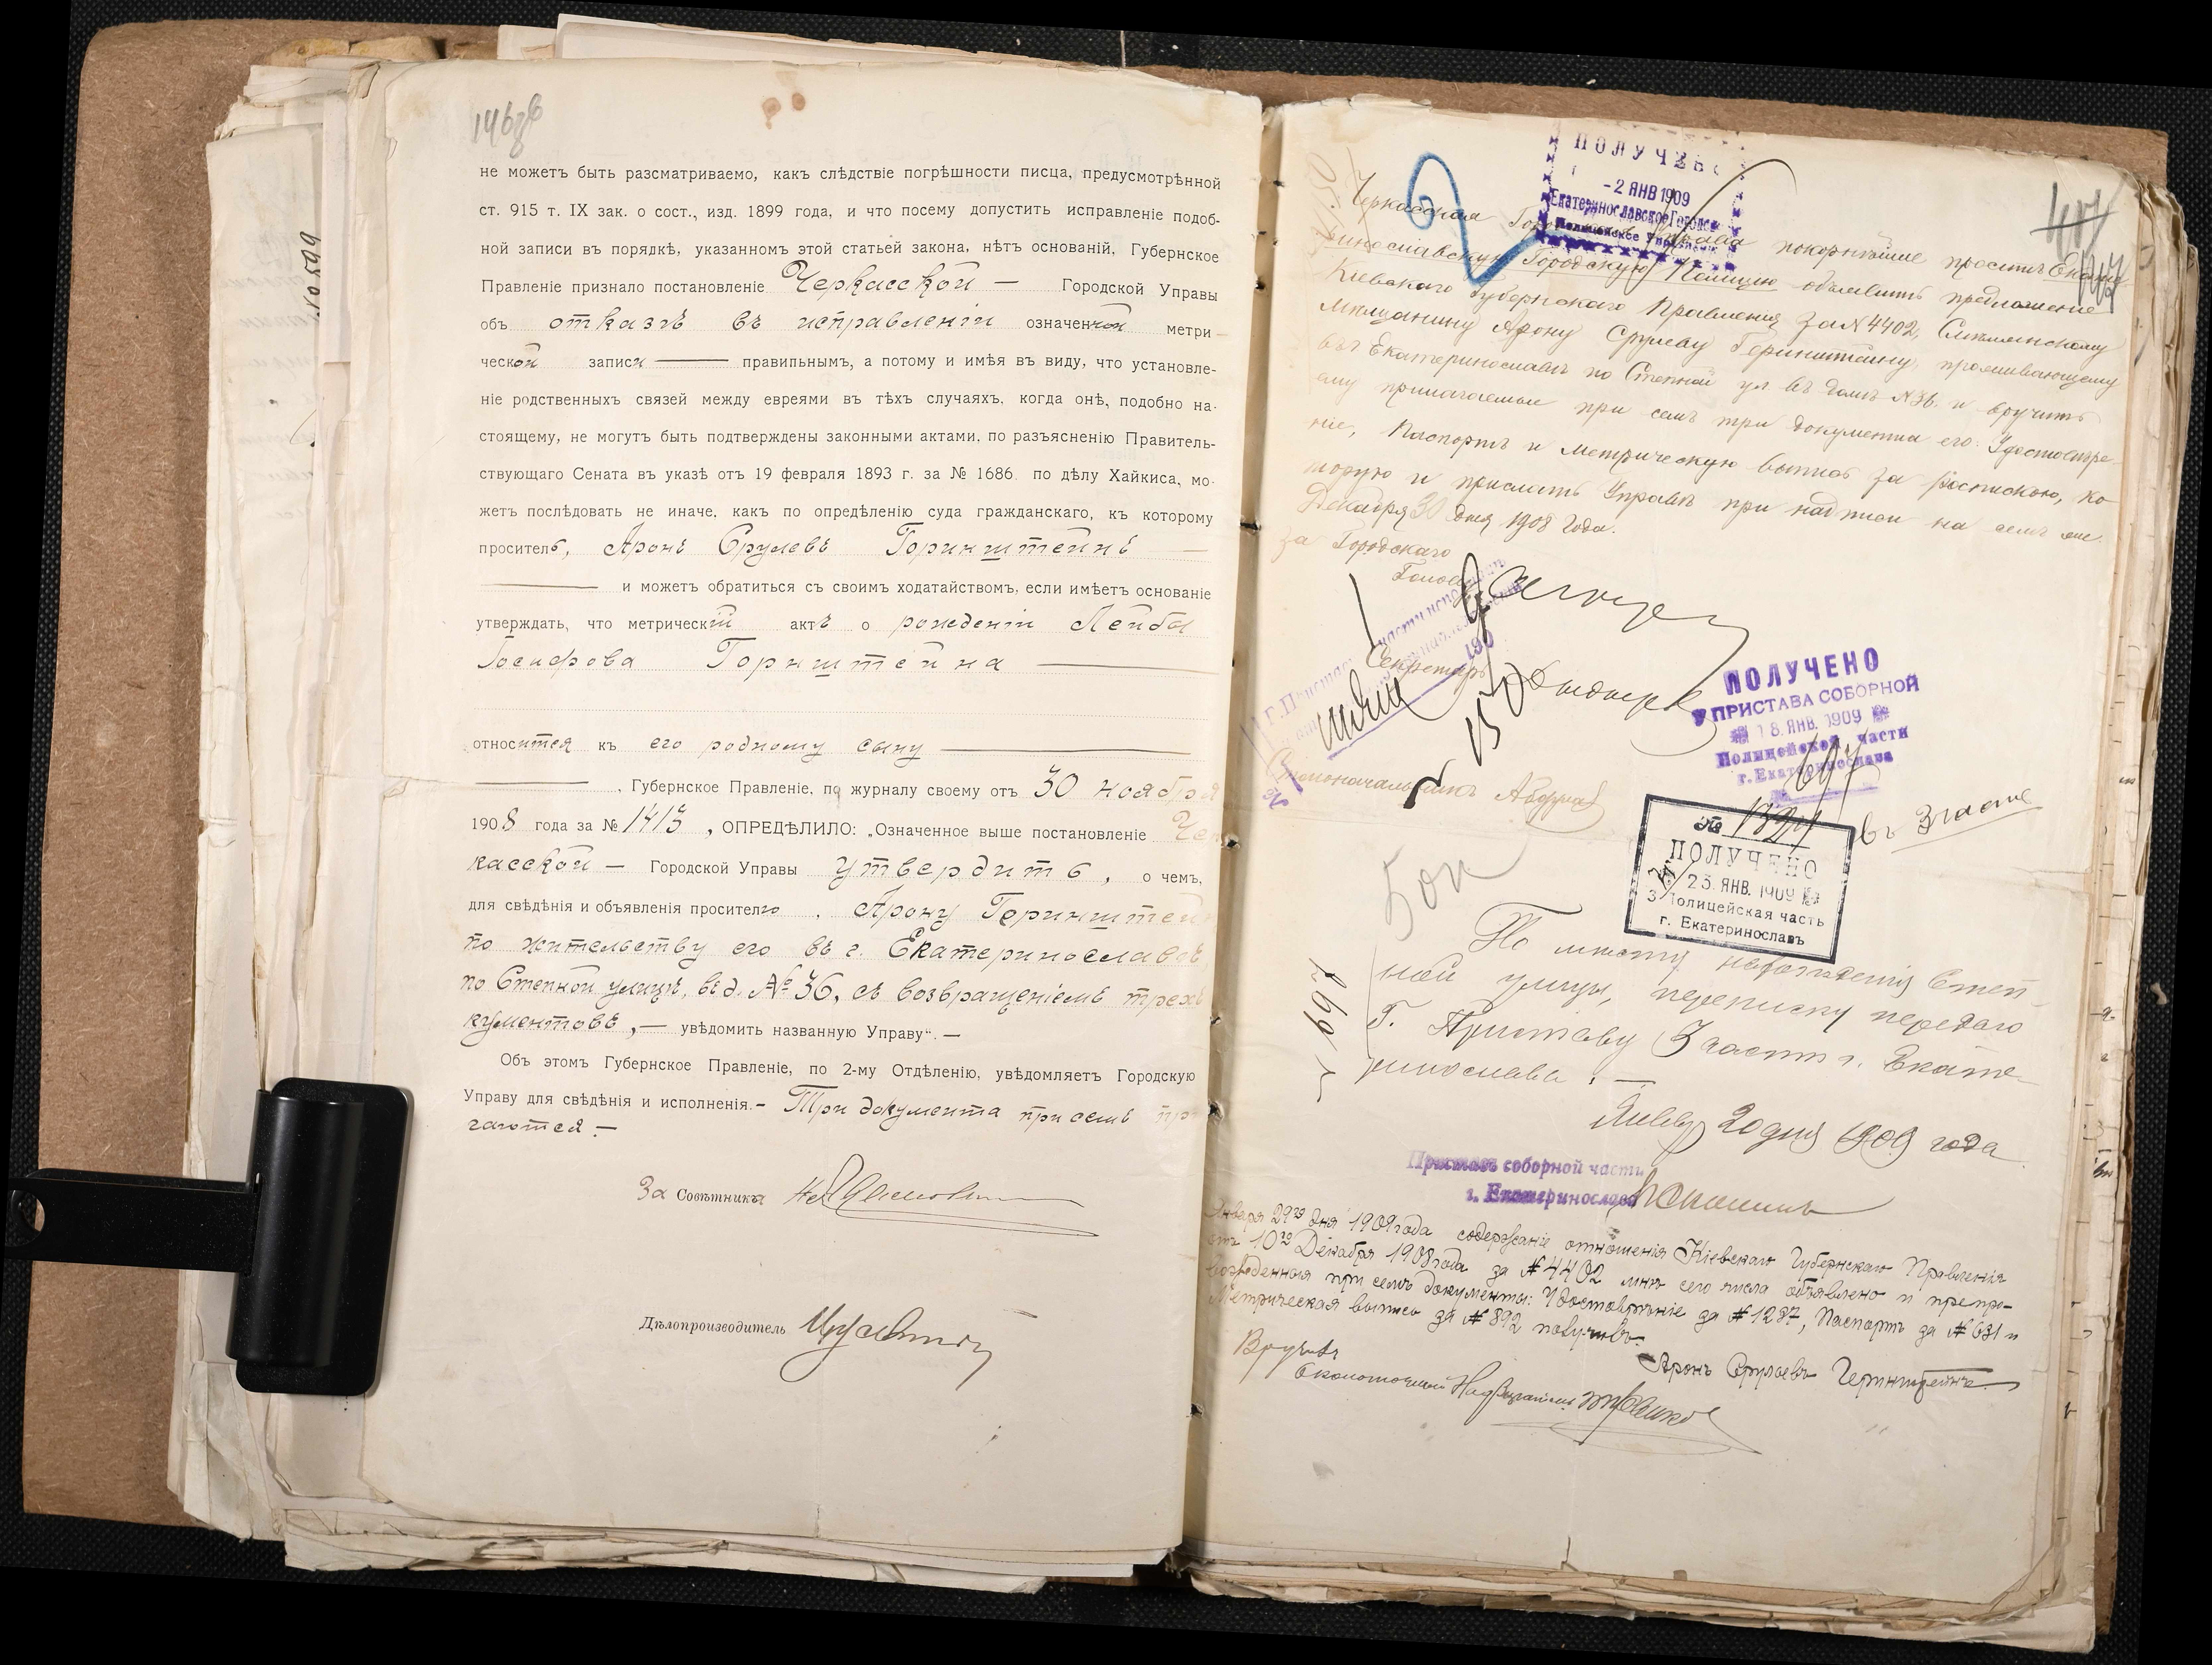 146об
не можетъ быть разсматриваемо, какъ слѣдствіе погрѣшности писца, предусмотрѣнной
ст. 915 т. IX зак. о сост., изд. 1899 года, и что посему допустить исправленіе подоб-
ной записи въ порядкѣ, указанномъ этой статьей закона, нѣтъ основаній, Губернское
Правленіе признало постановленіе Черкасской — Городской Управы
объ отказѣ въ исправленіи означенной метри-
ческой записи — правильнымъ, а потому и имѣя въ виду, что установле-
ніе родственныхъ связей между евреями въ тѣхъ случаяхъ, когда онѣ, подобно на-
стоящему, не могутъ быть подтверждены законными актами, по разъясненію Правитель-
ствующаго Сената въ указѣ отъ 19 февраля 1893 г. за № 1686 по дѣлу Хайкиса, мо-
жетъ послѣдовать не иначе, какъ по опредѣленію суда гражданскаго, къ которому
проситель, Аронъ Срулевъ Горинштейнъ —
— и можетъ обратиться съ своимъ ходатайствомъ, если имѣетъ основаніе
утверждать, что метрическій актъ о рожденіи Лейба
Іосифова Горнштейна —
относится къ его родному сыну —
—, Губернское Правленіе, по журналу своему отъ 30 ноября
1908 года за № 1413, ОПРЕДѢЛИЛО: „Означенное выше постановленіе Чер
касской — Городской Управы утвердить, о чемъ,
для свѣдѣнія и объявленія просителю. Арону Геринштейн
по жительству его въ г. Екатеринославѣ,
по Степной улицѣ, въ д. № 36, съ возвращеніемъ трехъ
кументовъ, — увѣдомить названную Управу“. —
Объ этомъ Губернское Правленіе, по 2-му Отдѣленію, увѣдомляетъ Городскую
Управу для свѣдѣнія и исполненія. — Три документа при семъ при
гаются —
За Совѣтника
Дѣлопроизводитель
ПОЛУЧЕНО
- 2 ЯНВ 1909
Екатеринославское Городск
Полицейское Управленіе
Черкасская Городская Управа покорнѣйше проситъ Екате
ринославскую Городскую Полицію объявить предложеніе
Кіевскаго Губернскаго Правленія за № 4402, Смѣлянскому
мѣщанину Арону Срулеву Геринштейну, проживающему
въ г. Екатеринославѣ по Степной ул. въ домѣ № 36. и вручить
ему прилагаемые при семъ три документа его: Удостовѣре
ніе, Паспортъ и Метрическую выпись за роспискою, ко
торую и прислать Управѣ при надписи на семъ же.
Декабря 30 дня 1908 года.
за Городского
Голова
Секретарь
Столоначальникъ
ПОЛУЧЕНО
У ПРИСТАВА СОБОРНОЙ
18. ЯНВ. 1909
Полицейской части
г. Екатеринослава
697
въ 3 части
№ 1324
ПОЛУЧЕНО
23. ЯНВ. 1909
3 Полицейская часть
г. Екатеринославъ
По мѣсту нахожденія Степ-
ной улицы, переписку передаю
Г. Приставу 3 части г. Екате-
ринослава. —
№ 697
Январ 20 дня 1909 года
Приставъ соборной части
г. Екатеринослава
Января 29го дня 1909 года содержаніе отношенія Кіевскаго Губернскаго Правленія
отъ 10го Декабря 1908 года за № 4402 мнѣ сего числа объявлено и препро-
вожденныя при семъ документы: Удостовѣреніе за № 1287, Паспортъ за № 631 и
Метрическая выпись за № 892 получивъ.
Аронъ Срулевъ Геринштейнъ
Вручилъ
Околоточный Надзиратель